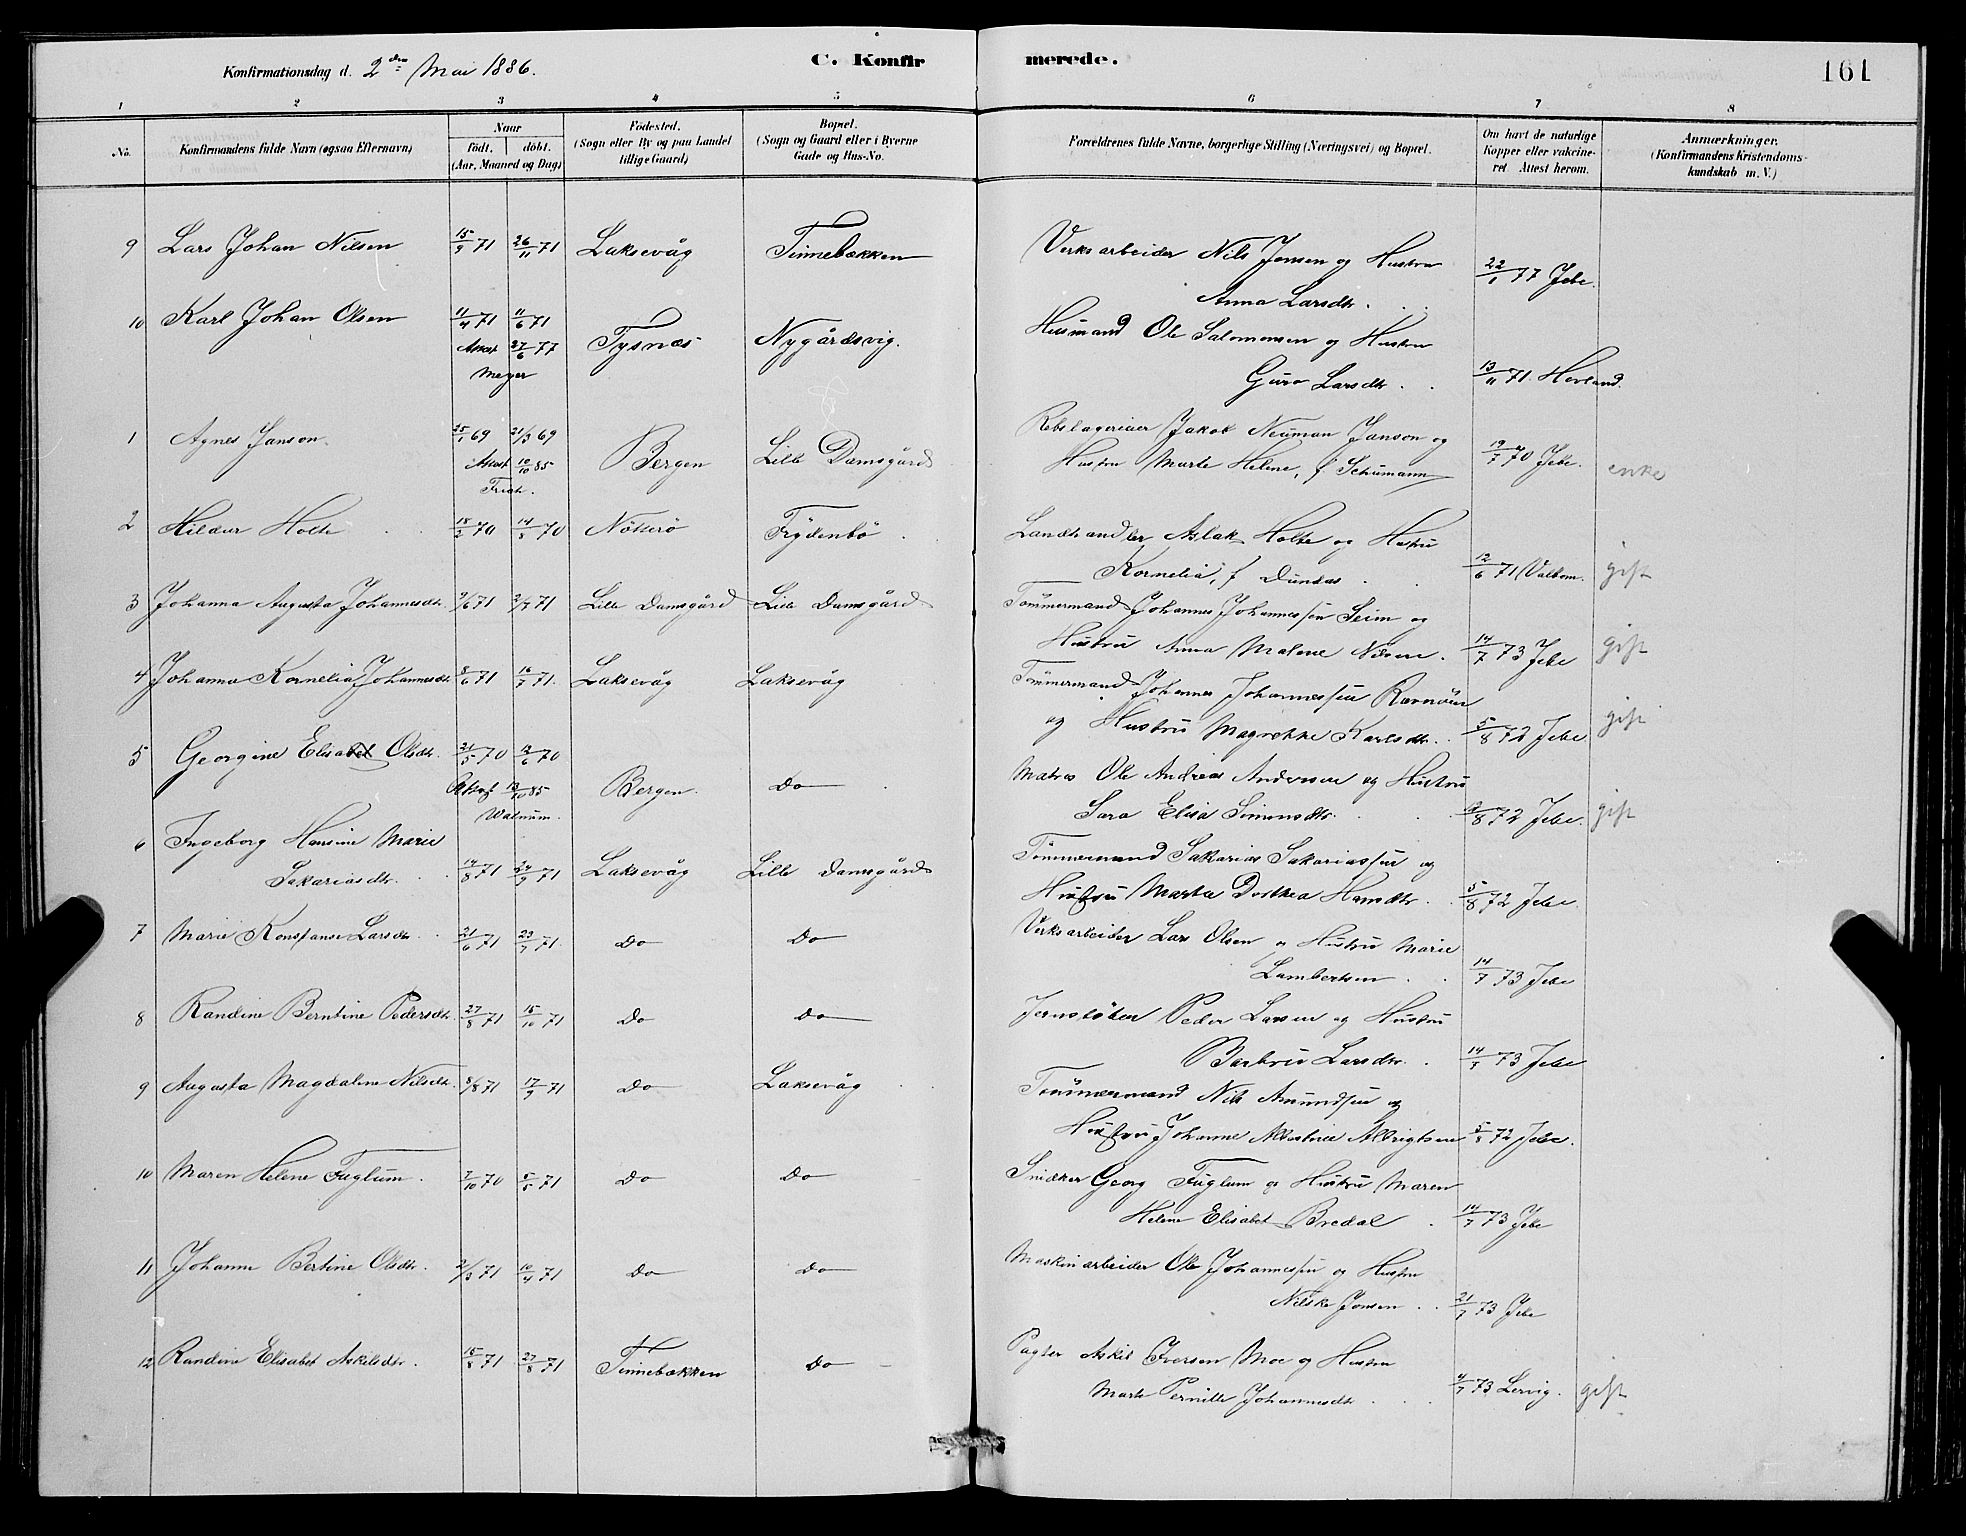 Konfirmationsdag d. 2den Mai 1886.
C. Konfirmerede.
161
1 2 3 4 5 6 7 8
No. Konfirmandens fulde Navn (ogsaa Efternavn)
Naar
födt. döbt.
(Aar, Maaned og Dag)
Födested.
(Sogn eller By og paa Landet tillige Gaard)
Bopæl.
(Sogn og Gaard eller i Byerne Gade og Hus-No.
Forældrenes fulde Navne, borgerlige Stilling (Næringsvei) og Bopæl.
Om havt de naturlige Kopper eller vakcineret. Attest herom.
Anmærkninger.
(Konfirmandens Kristendomskundskab m. V.)
9 Lars Johan Nilsen 15/9 71 26/11 71 Laksevåg Tinnebækken Verksarbeider Nils Jensen og Hustru
Anna Larsdtr. 22/1 77 Jebe.
10 Karl Johan Olsen 11/4 71 11/6 71 Tysnæs Nygårdsvig. Husmand Ole Salomonsen og Hustru
Attest 27/6 77 Meyer
Guro Larsdtr. 13/11 71. Hovland.
1 Agnes Janson 25/1 69 21/3 69 Bergen Lille Damsgård Rebslageriaer Jakob Neuman Janson og
Attest 10/10 85 Frich.
Hustru Marte Helene, f Schumann 19/7 70 Jebe. enke
2 Hildur Holte 18/2 70 14/8 70 Nötterö Frydenbö Landhandler Aslak Holte og Hustru
Kornelia, f Dundas 12/6 71 Valbom. gift
3 Johanna Augusta Johannesdtr. 2/6 71 2/7 71 Lille Damsgård Lille Damsgård Tömmermand Johannes Johannessen Seim og
Hustru Anna Malene Nilsen. 14/7 73 Jebe gift
4 Johanna Kornelia Johannesdtr 8/6 71 16/7 71. Laksevåg Laksevåg Tömmermand Johannes Johannessen Ravnöen
og Hustru Magrethe Karlsdtr. 5/8 72 Jebe gift
5 Georgine Elisabet Olsdtr. 21/5 70 12/6 70 Bergen Do Matros Ole Andreas Andersen og Hustru
Attest 13/10 85 Walnum.
Sara Elisa Simonsdtr. 9/8 72 Jebe. gift
6 Ingeborg Hansine Marie
Sakariasdtr. 14/8 71 24/9 71 Laksevåg Lille Damsgård Tömmermand Sakarias Sakariassen og
Hustru Marta Dorthea Hansdtr. 5/8 72 Jebe.
7 Marie Konstanse Larsdtr. 21/6 71 23/7 71. Do Do Verksarbeider Lars Olsen og Hustru Marie
Lambertsen 14/7 73 Jebe
8 Randine Berntine Pedersdtr. 27/8 71 15/10 71 Do Do Jernstöber Peder Larsen og Hustru
Barbru Larsdtr. 14/7 73 Jebe
9 Augusta Magdalene Nilsdtr. 8/8 71 17/9 71 Do Laksevåg Tömmermand Nils Amundsen og
Hustru Johanne Albertine Albrigtsen 5/8 72 Jebe.
10 Maren Helene Fuglum. 7/10 70 5/5 71 Do Do Snedker Georg Fuglum og Hustru Maren
Helene Elisabet Bredal 14/7 73 Jebe
11 Johanne Bertine Olsdtr. 2/3 71 10/4 71 Do Do Maskinarbeider Ole Johannessen og Hustru
Nilske Jonsen 21/7 73 Jebe
12 Randine Elisabet Askilsdtr. 15/8 71 27/8 71 Tinnebækken Do Pagter Askil Iversen Moe og Hustru
Marte Pernille Johannesdtr. 4/7 73 Lervig. gift